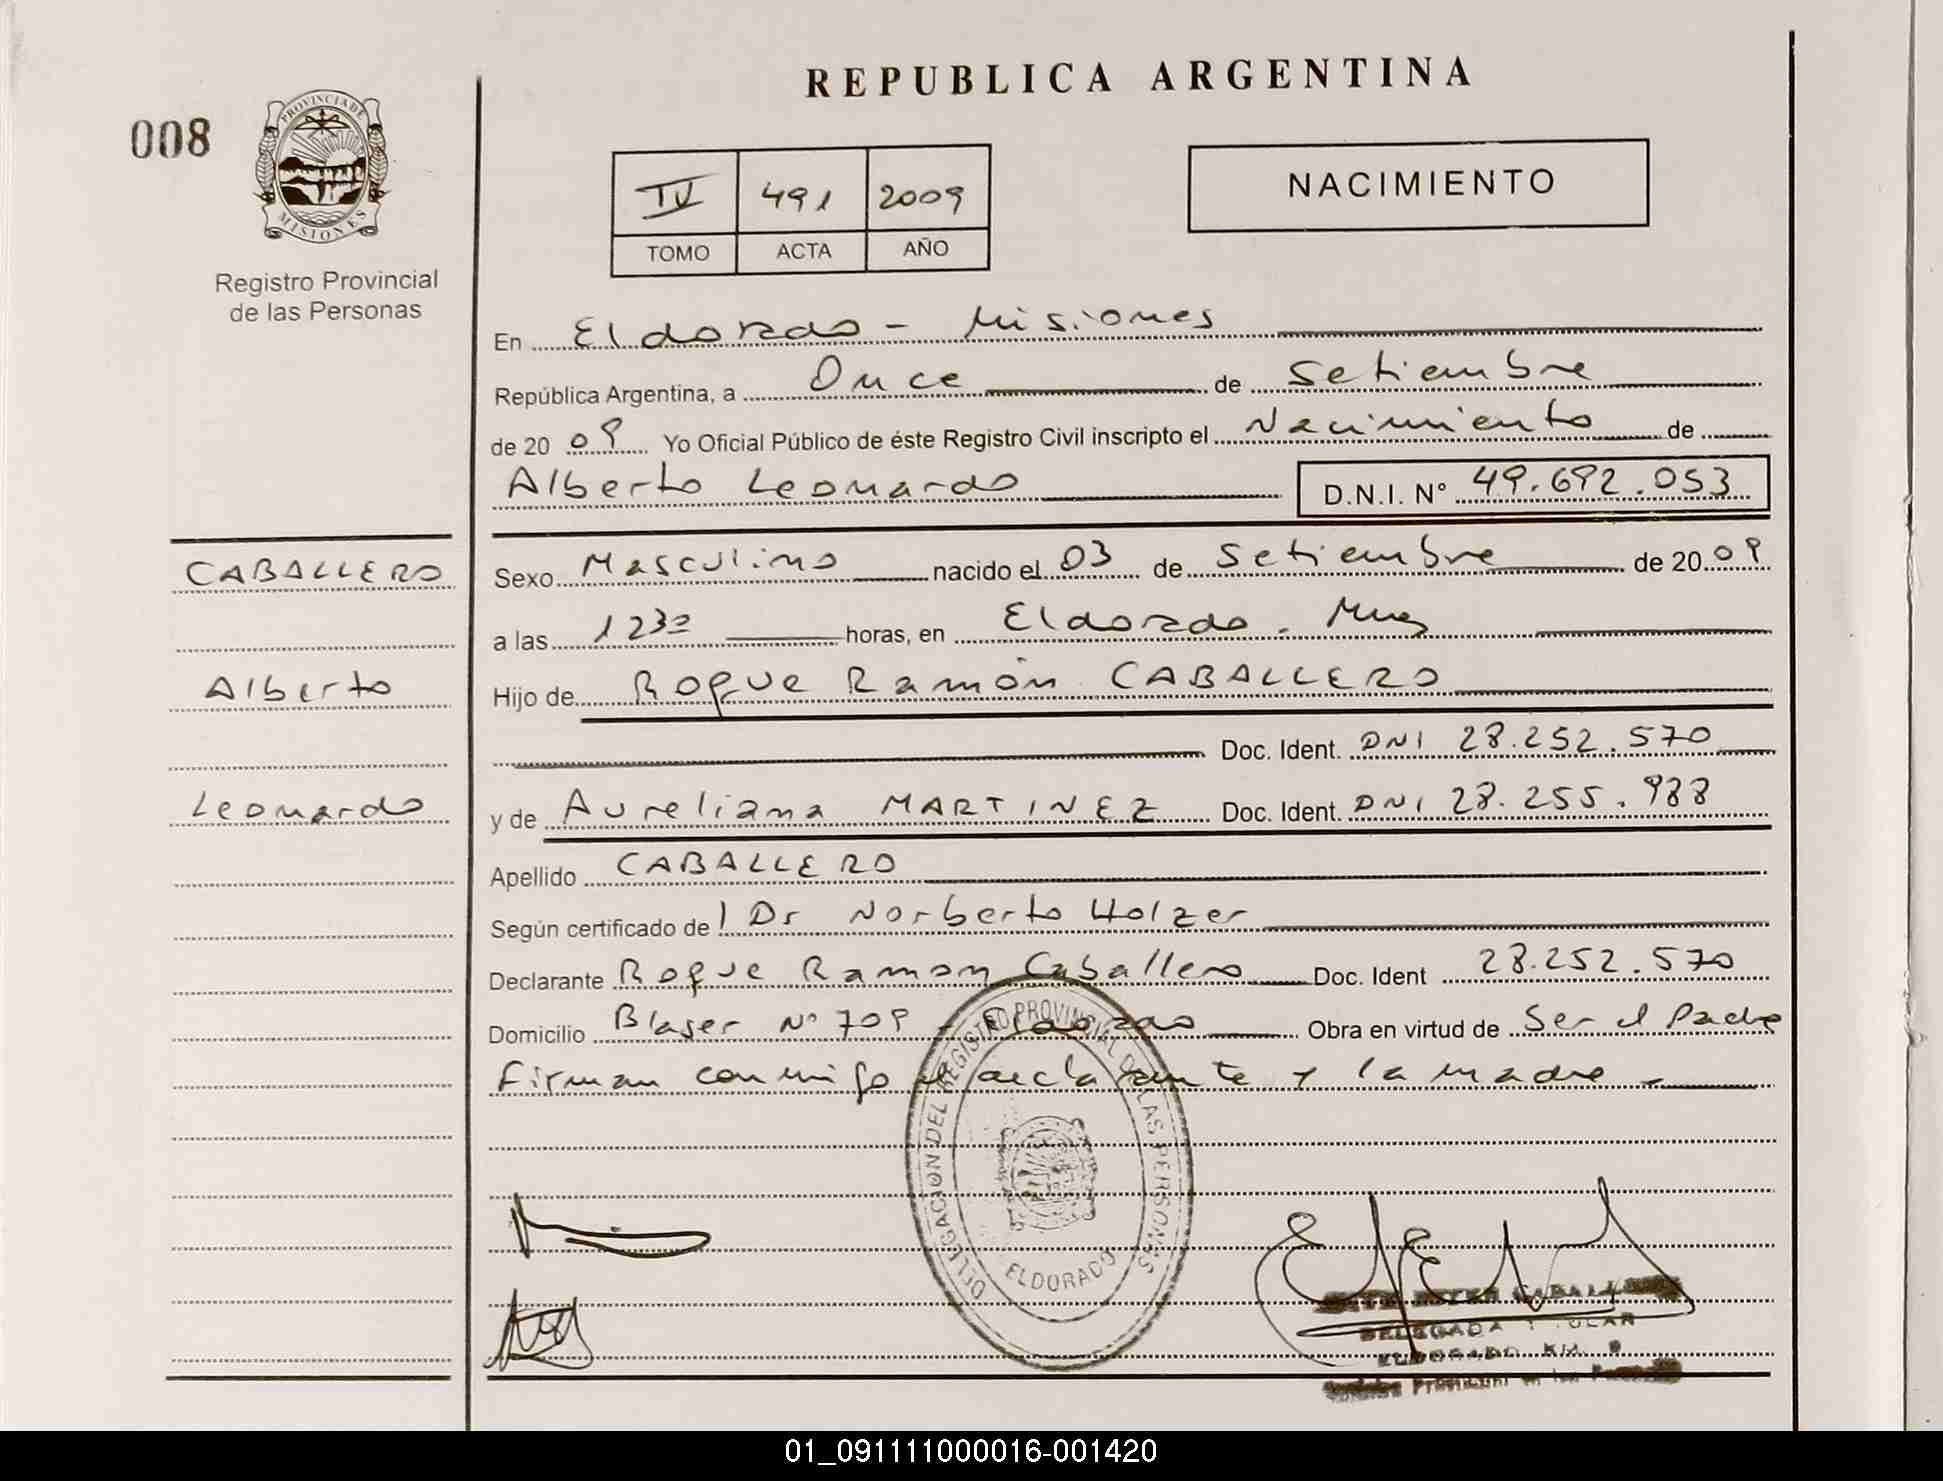 REPUBLICA ARGENTINA
008
PROVINCIA DE
MISIONES
Registro Provincial
de las Personas
IV 491 2009
TOMO ACTA AÑO
NACIMIENTO
En Eldorado - Misiones
República Argentina, a Once de Setiembre
de 20 09 Yo Oficial Público de éste Registro Civil inscripto el Nacimiento de
Alberto Leonardo D.N.I. N° 49.692.053
CABALLERO
Alberto
Leonardo
Sexo Masculino nacido el 03 de Setiembre de 20 09
a las 1230 horas, en Eldorado. Mnes
Hijo de Roque Ramón CABALLERO
Doc. Ident. DNI 28.252.570
y de Aureliana MARTINEZ Doc. Ident. DNI 28.255.988
Apellido CABALLERO
Según certificado de l Dr Norberto Holzer
Declarante Roque Ramon Caballero Doc. Ident 28.252.570
Domicilio Blaser N° 709 - Eldorado Obra en virtud de Ser el Padre
Firman conmigo el declarante y la madre.
DELEGACION DEL REGISTRO PROVINCIAL DE LAS PERSONAS
ELDORADO
DELEGADA
ELDORADO KM. 9
01_091111000016-001420